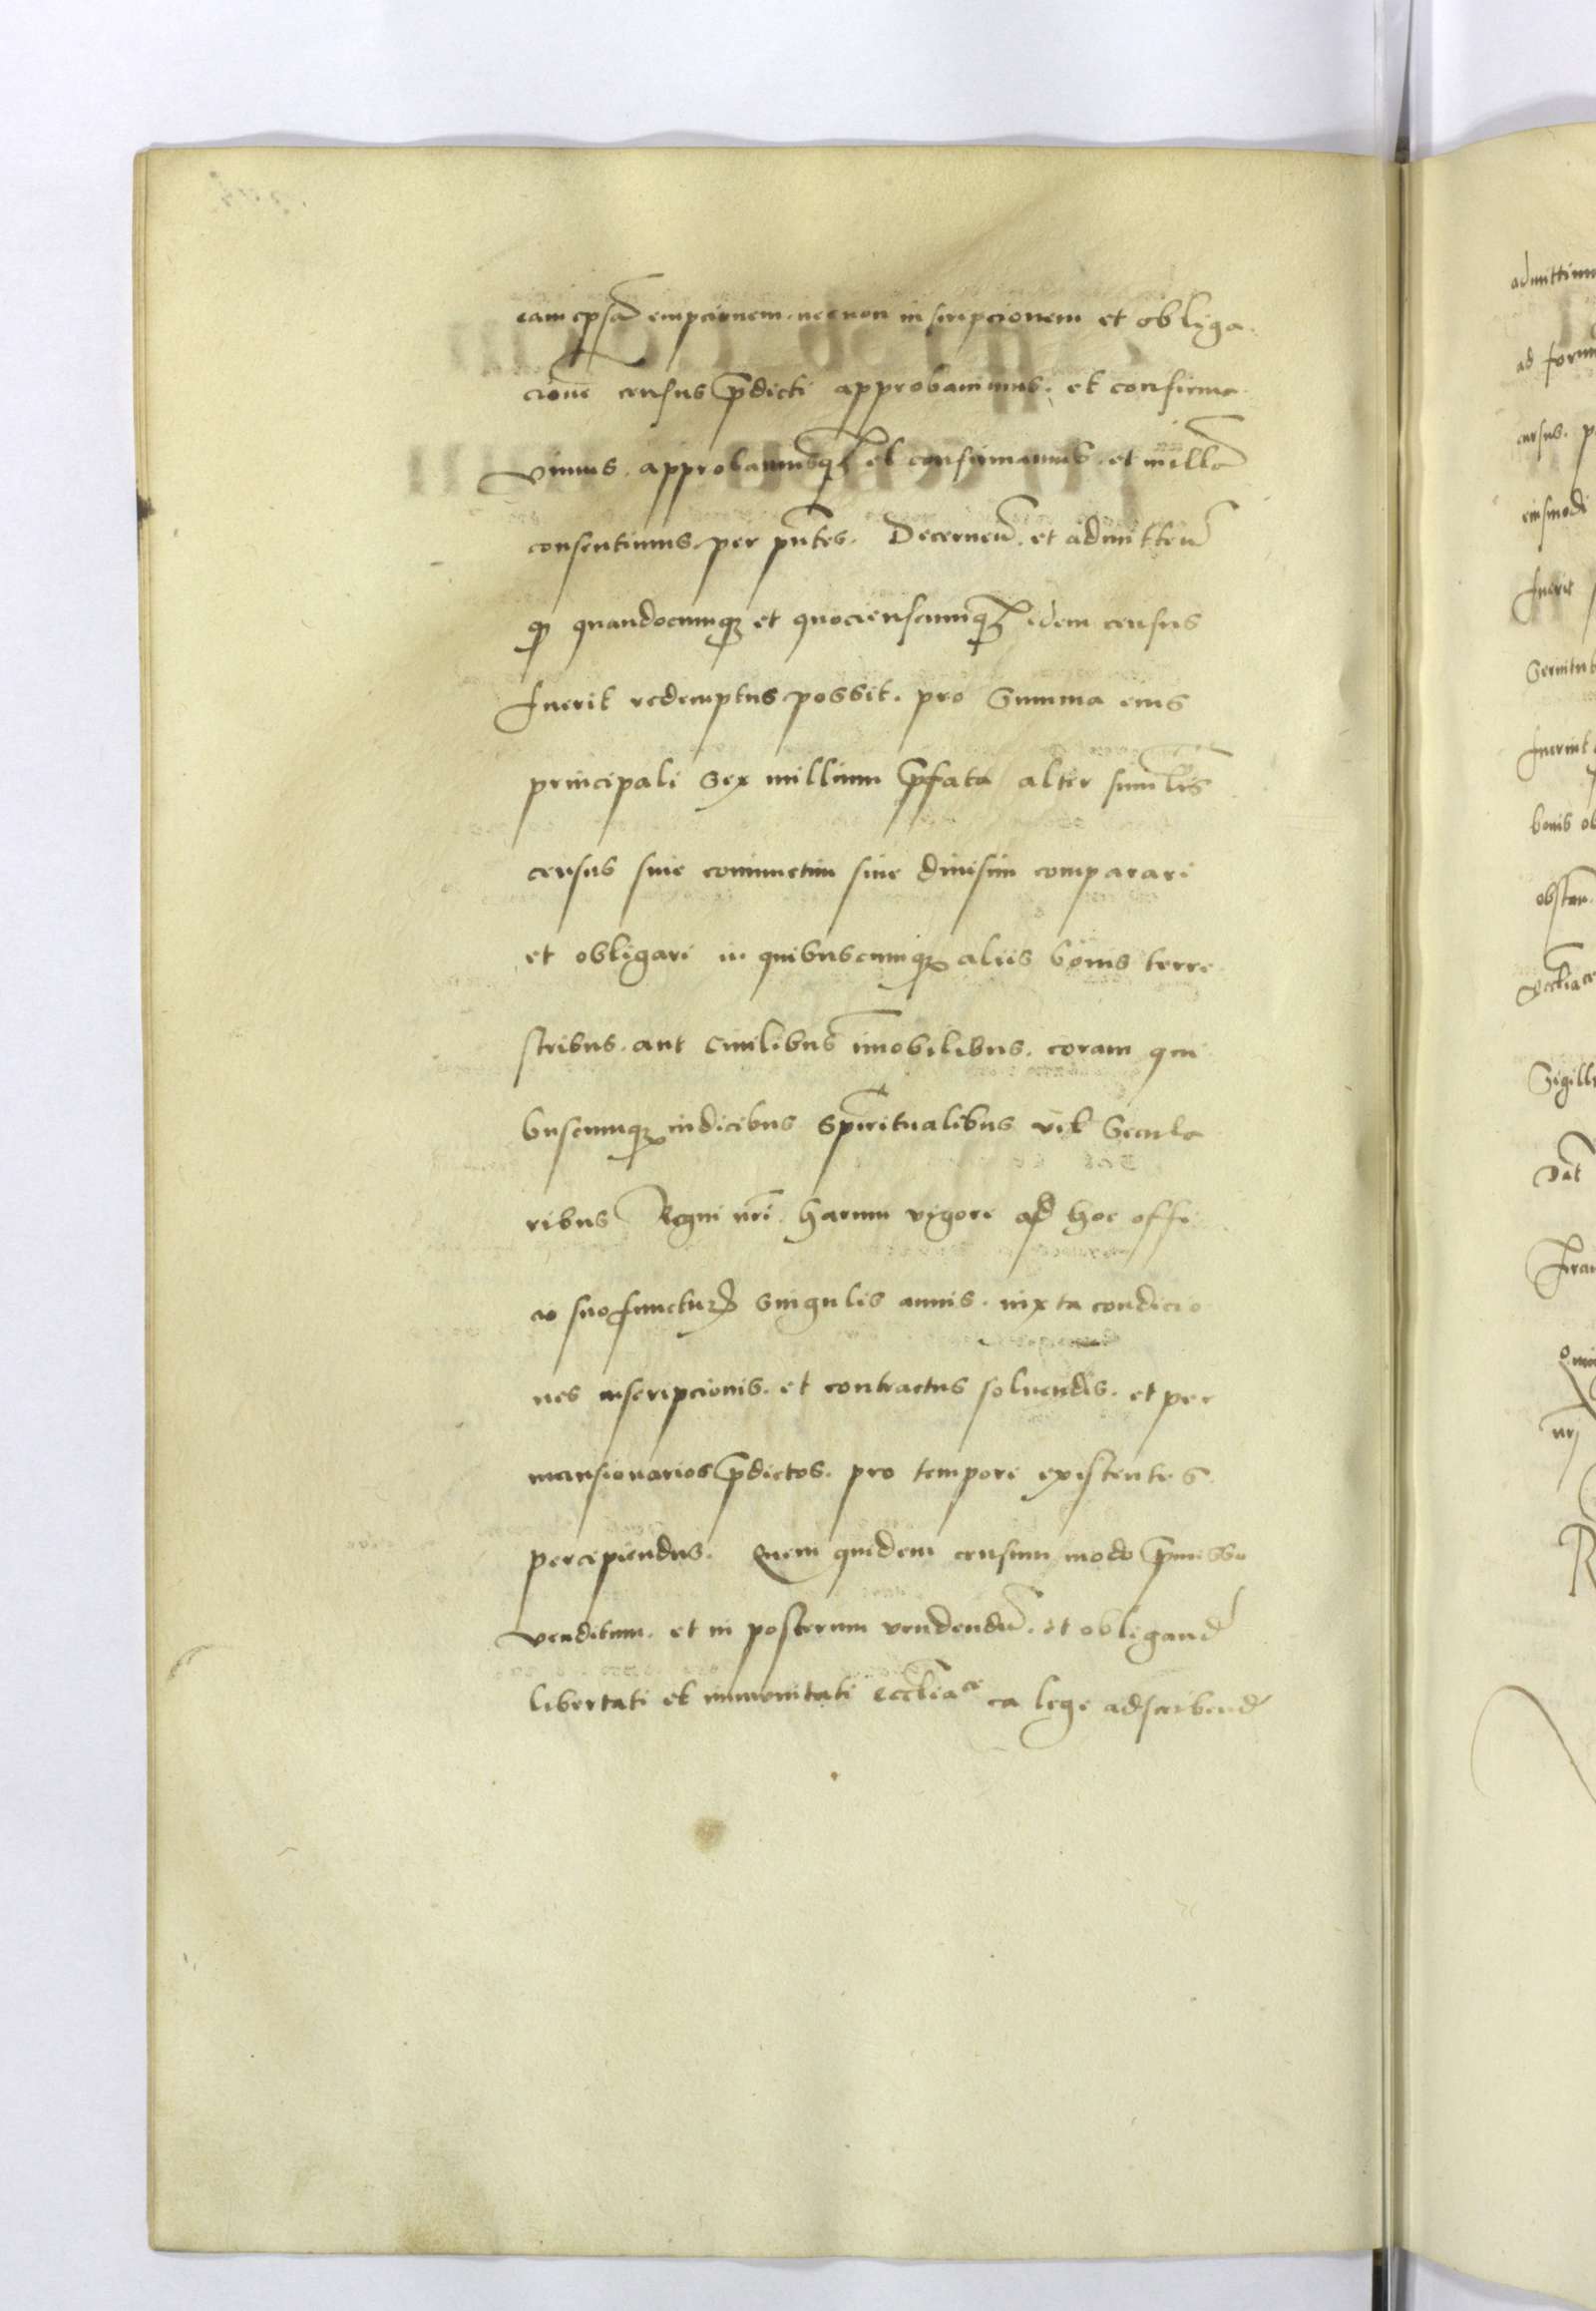 eam ip̃sã empcionem. necnon inscripcionem et obliga
cionẽ census p̃dicti approbauimus. et confirma
vimus. approbamusq₃ et confirmamus. et in illã
consentimus. per pñtes. Decerneñ. et admitteñ
qͥ quandocumq₃ et quocienscumq₃ idem census
fuerit redemptus possit. pro Summa eius
principali Sex millium p̃fata alter similis
census siue coniunctim siue diuisim comparari
et obligari in quibuscumq₃ aliis bonis terre
stribus. aut Ciuilibus im̃obilibus. coram qui
buscumq₃ iudicibus Spiritualibus vel Secula
ribus Regni nr̃i. harum vigore ad hoc offi
cio suo functur̃. Singulis annis. iuxta condicio
nes inscripcionis. et contractus soluendus. et per
mansionarios p̃dictos. pro tempore existentes
percipiendus. Quem quidem censum modo p̃misso
venditum. et in posterum vendendũ. et obligand̃
libertati et immunitati ecclĩa^ce ea lege adscribend̃
admittim
ad form
census. p
eiusmodi
fuerit
Seruitut
fuerint
bonis ob
obstan
Ecclĩa^ce
Sigill
Dat̃